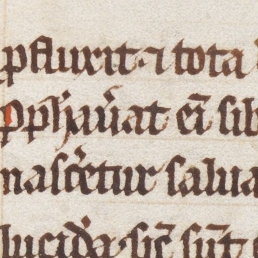 ꝓfluxit ⁊ tota
ꝓph̾au̾at ei̅ sib
nasc̾etur salua
lucida sic̅ su̅t